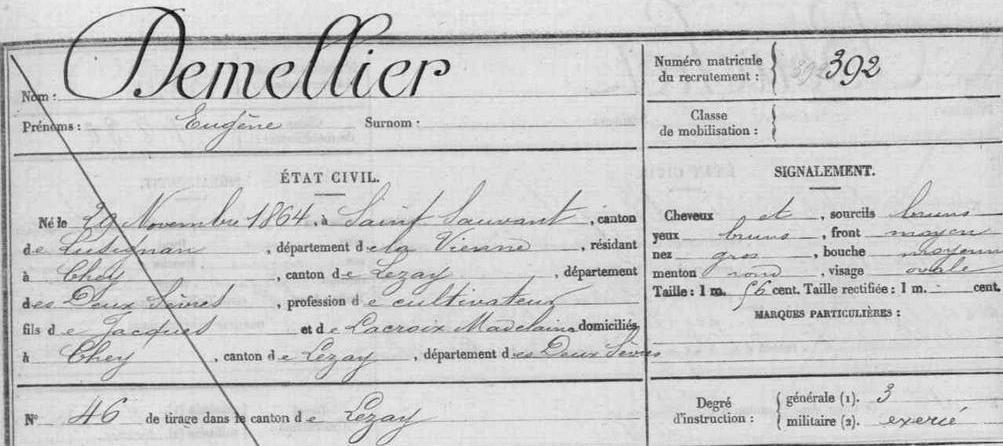 Nom : Demellier
Prénoms : Eugène Surnom :
Numéro matricule
du recrutement : 392 392
Classe
de mobilisation :
ÉTAT CIVIL.
Né le 29 Novembre 1864, à Saint Sauvant, canton
de Lusignan, département de la Vienne, résidant
à Chey, canton de Lezay, département
des Deux Sèvres, profession de cultivateur
fils de Jacques et de Lacroix Madelaine domiciliés
à Chey, canton de Lezay, département des Deux Sèvres
N° 46 de tirage dans le canton de Lezay
SIGNALEMENT.
Cheveux et, sourcils bruns
yeux bruns, front moyen
nez gros, bouche moyenne
menton rond, visage ovale
Taille : 1 m. 56 cent. Taille rectifiée : 1 m. - cent.
MARQUES PARTICULIÈRES :
Degré
d'instruction :
générale (1). 3
militaire (2). exercé